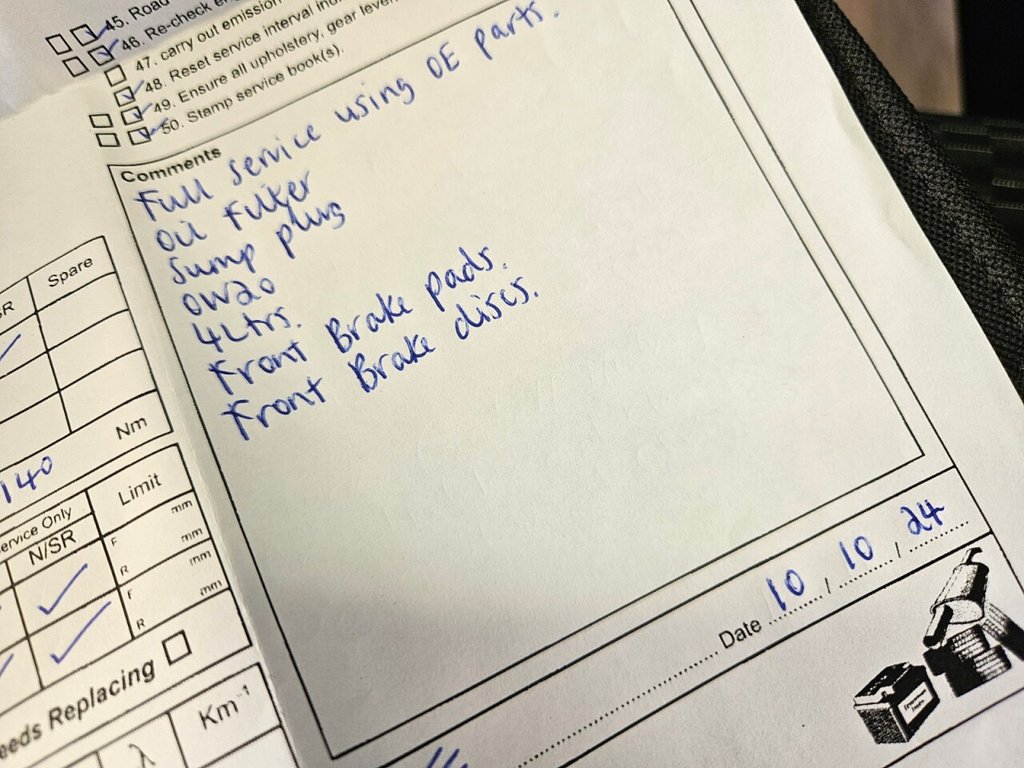 45. Road
46. Re-check
47. carry out emission
48. Reset service interval
49. Ensure all upholstery, gear
50. Stamp service book(s).
Comments
Full service using OE parts.
Oil filter
Sump plug
0W20
4Ltrs.
Front Brake pads.
Front Brake discs.
Spare
Nm
140
Limit
Service Only
N/SR
F mm
R mm
F mm
R
Replacing
Km⁻¹
λ
Date 10 / 10 / 24